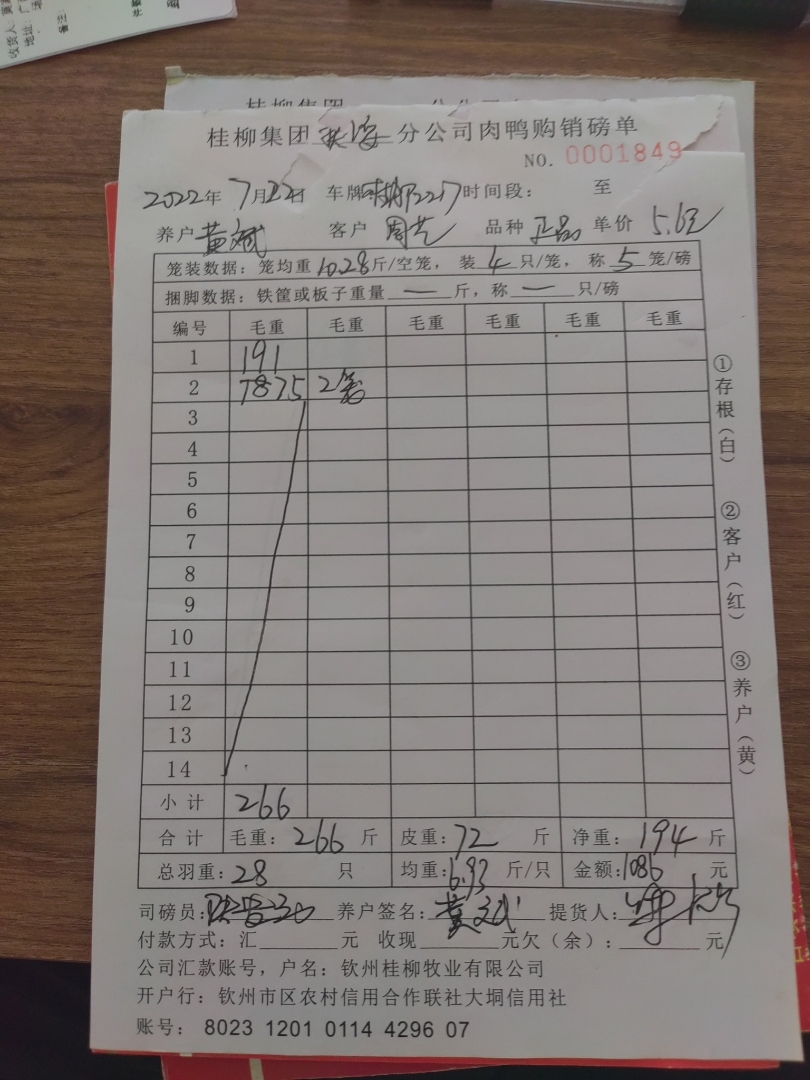 收货人
地址：
备注：
桂柳集团
桂柳集团 分公司肉鸭购销磅单
NO. 0001849
2022年 7月22日 车牌 时间段： 至
养户 黄斌 客户 周艺 品种 正品 单价 5.6元
笼装数据：笼均重 10.28 斤/空笼， 装 4 只/笼， 称 5 笼/磅
捆脚数据：铁筐或板子重量 — 斤，称 — 只/磅
编号 毛重 毛重 毛重 毛重 毛重 毛重
1 191
2 78.75 2笼
3
4
5
6
7
8
9
10
11
12
13
14
小计 266
合计 毛重：266 斤 皮重：72 斤 净重：194 斤
总羽重：28 只 均重：6.93 斤/只 金额：1086 元
司磅员： 养户签名：黄斌 提货人：
付款方式：汇 元 收现 元欠（余）： 元
公司汇款账号，户名：钦州桂柳牧业有限公司
开户行：钦州市区农村信用合作联社大垌信用社
账号： 8023 1201 0114 4296 07
①存根（白）
②客户（红）
③养户（黄）